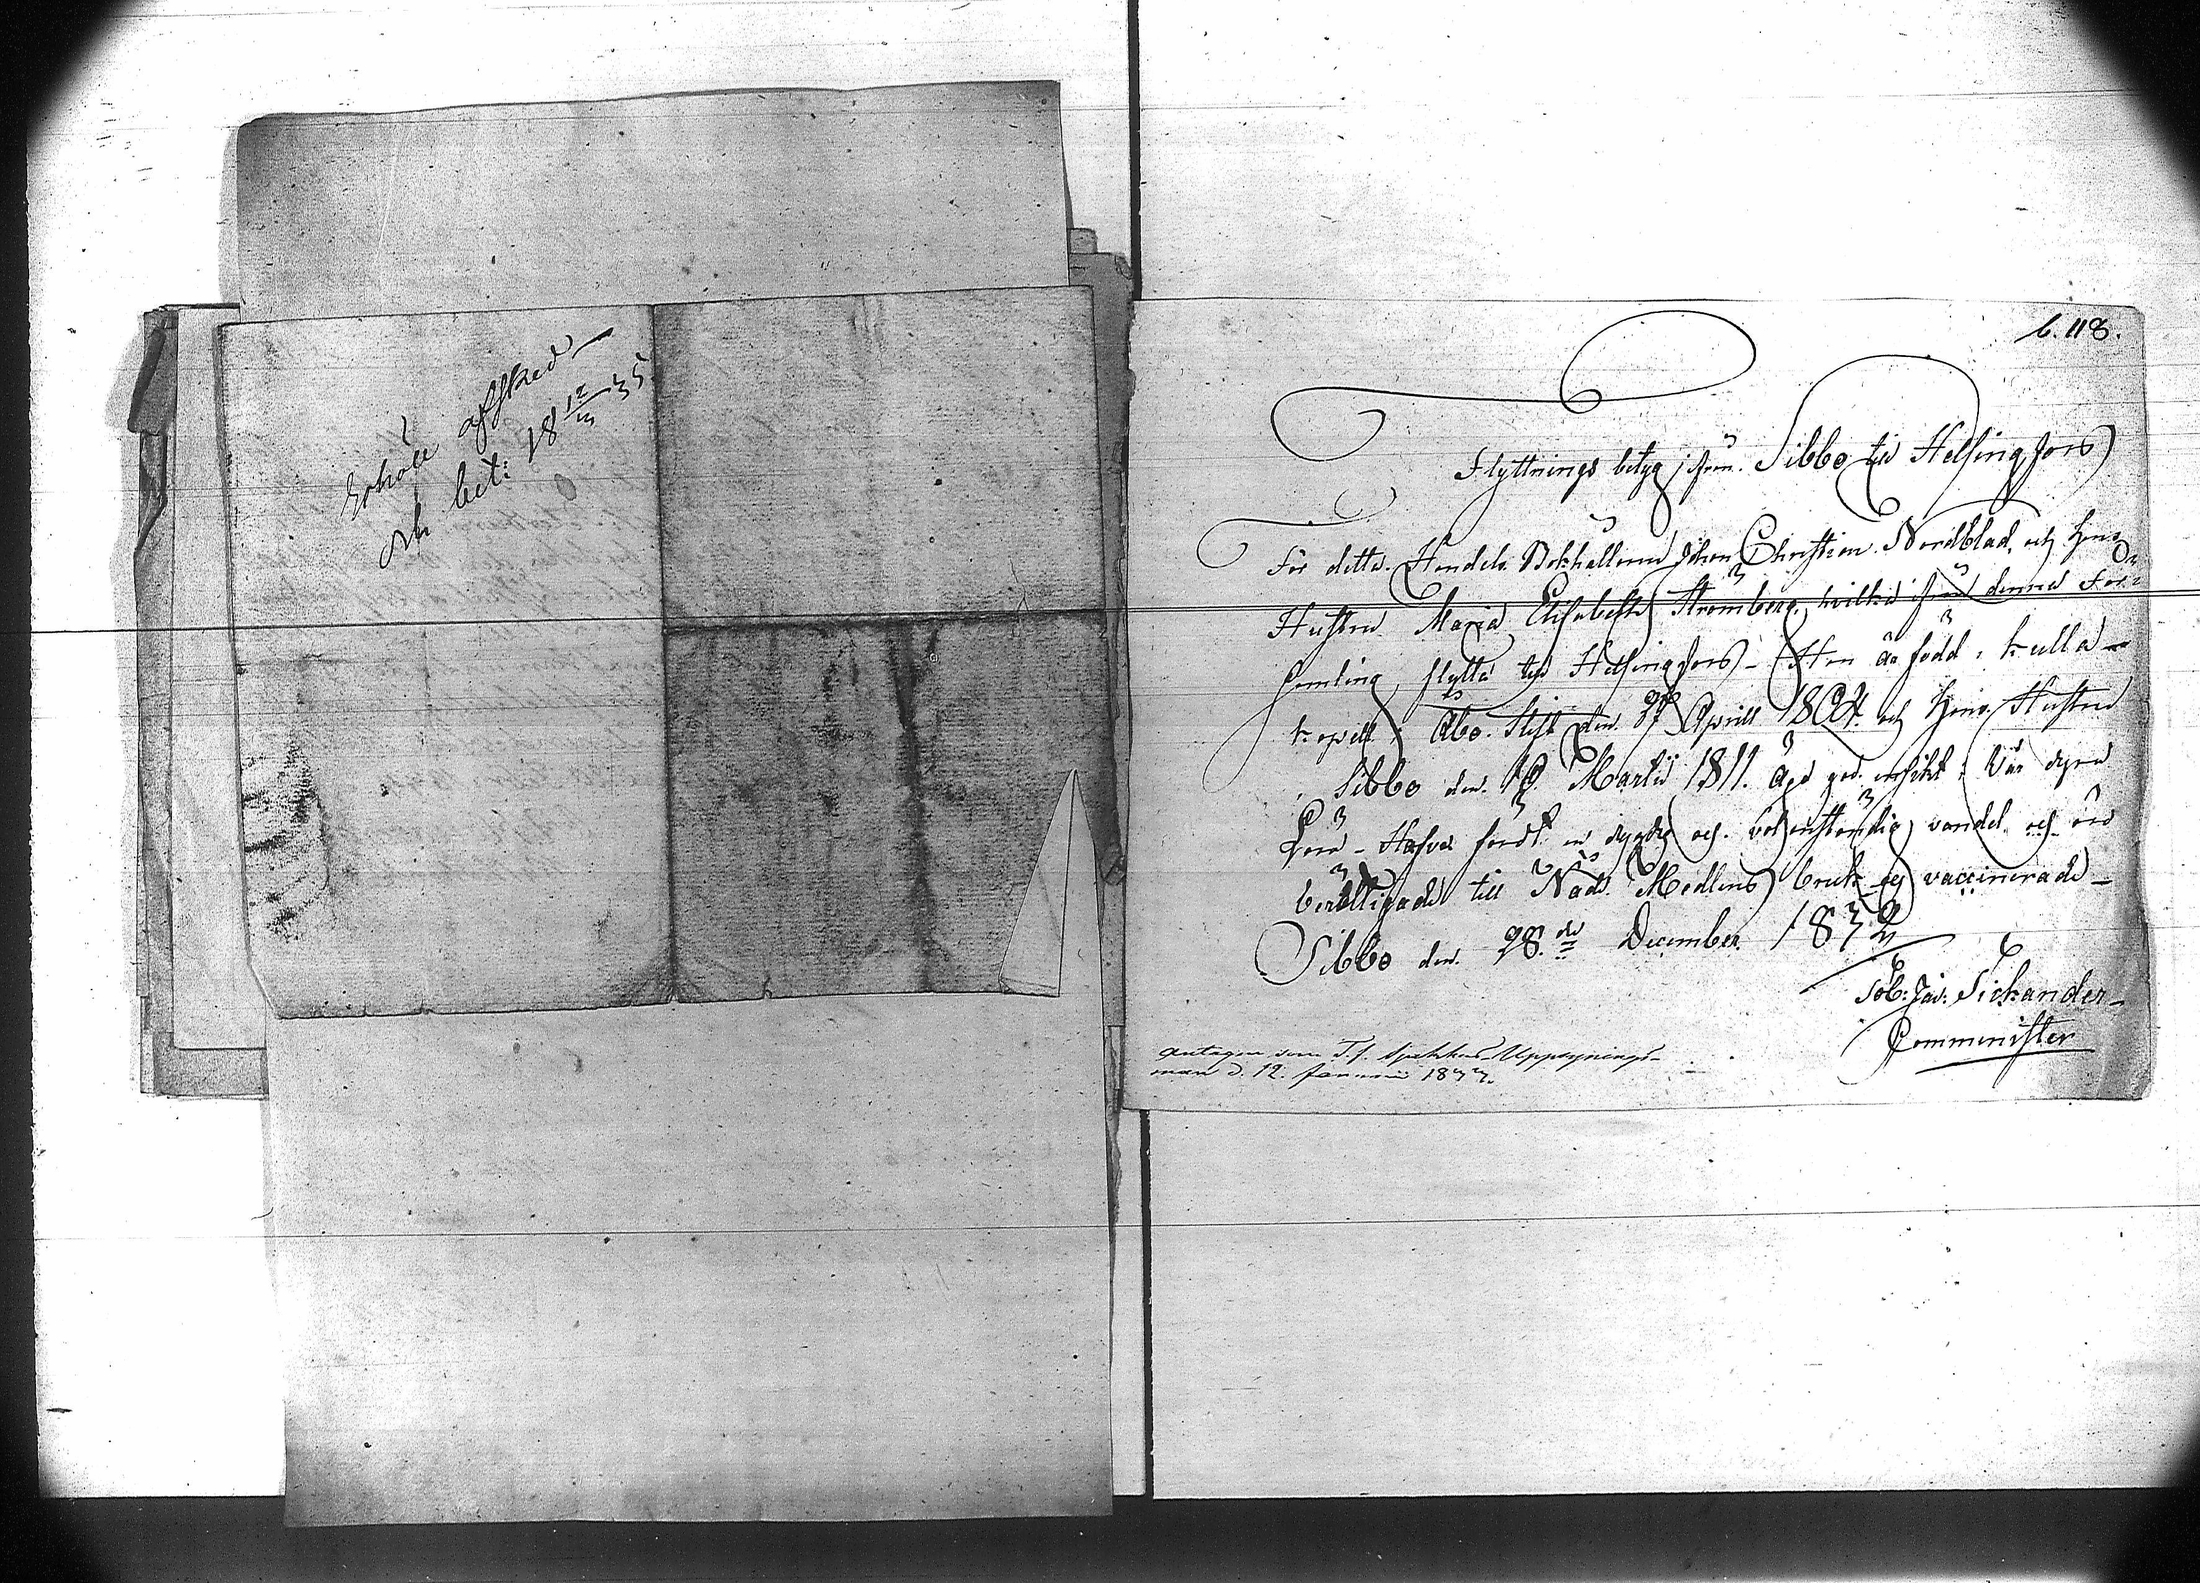 Erhöll afsked
och bet: 18 12/3 35.
b. 118.
Flyttnings betyg ifrån Sibbo till Helsingfors
Före detta Handels Bokhållaren Johan Christian Nordblad, och hans
Hustru Maria Elisabeth Strömberg, hvilka ifrån denna För-
samling flytta till Helsingfors - Han är född i Kulla
kapell i Åbo Stift den 27 Aprill 1804. och hans Hustru
i Sibbo den 19 Martii 1811. Äga god insikt i Vår dyra
Lära - Hafva fördt en dygdig och välanständig vandel och äro
berättigade till Nåde Medlens bruk och vaccinerade -
Sibbo den 28.de December 1832
Tob: Jac: Tickander -
Comminister
Antagen som T. f. Uppsynings-
man d. 12. Januarii 1833.